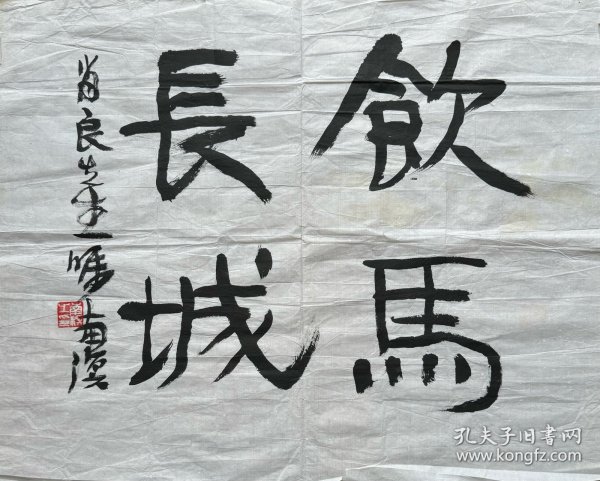 飲馬
長城
肖良先生一嘱
孔夫子旧书网
www.kongfz.com